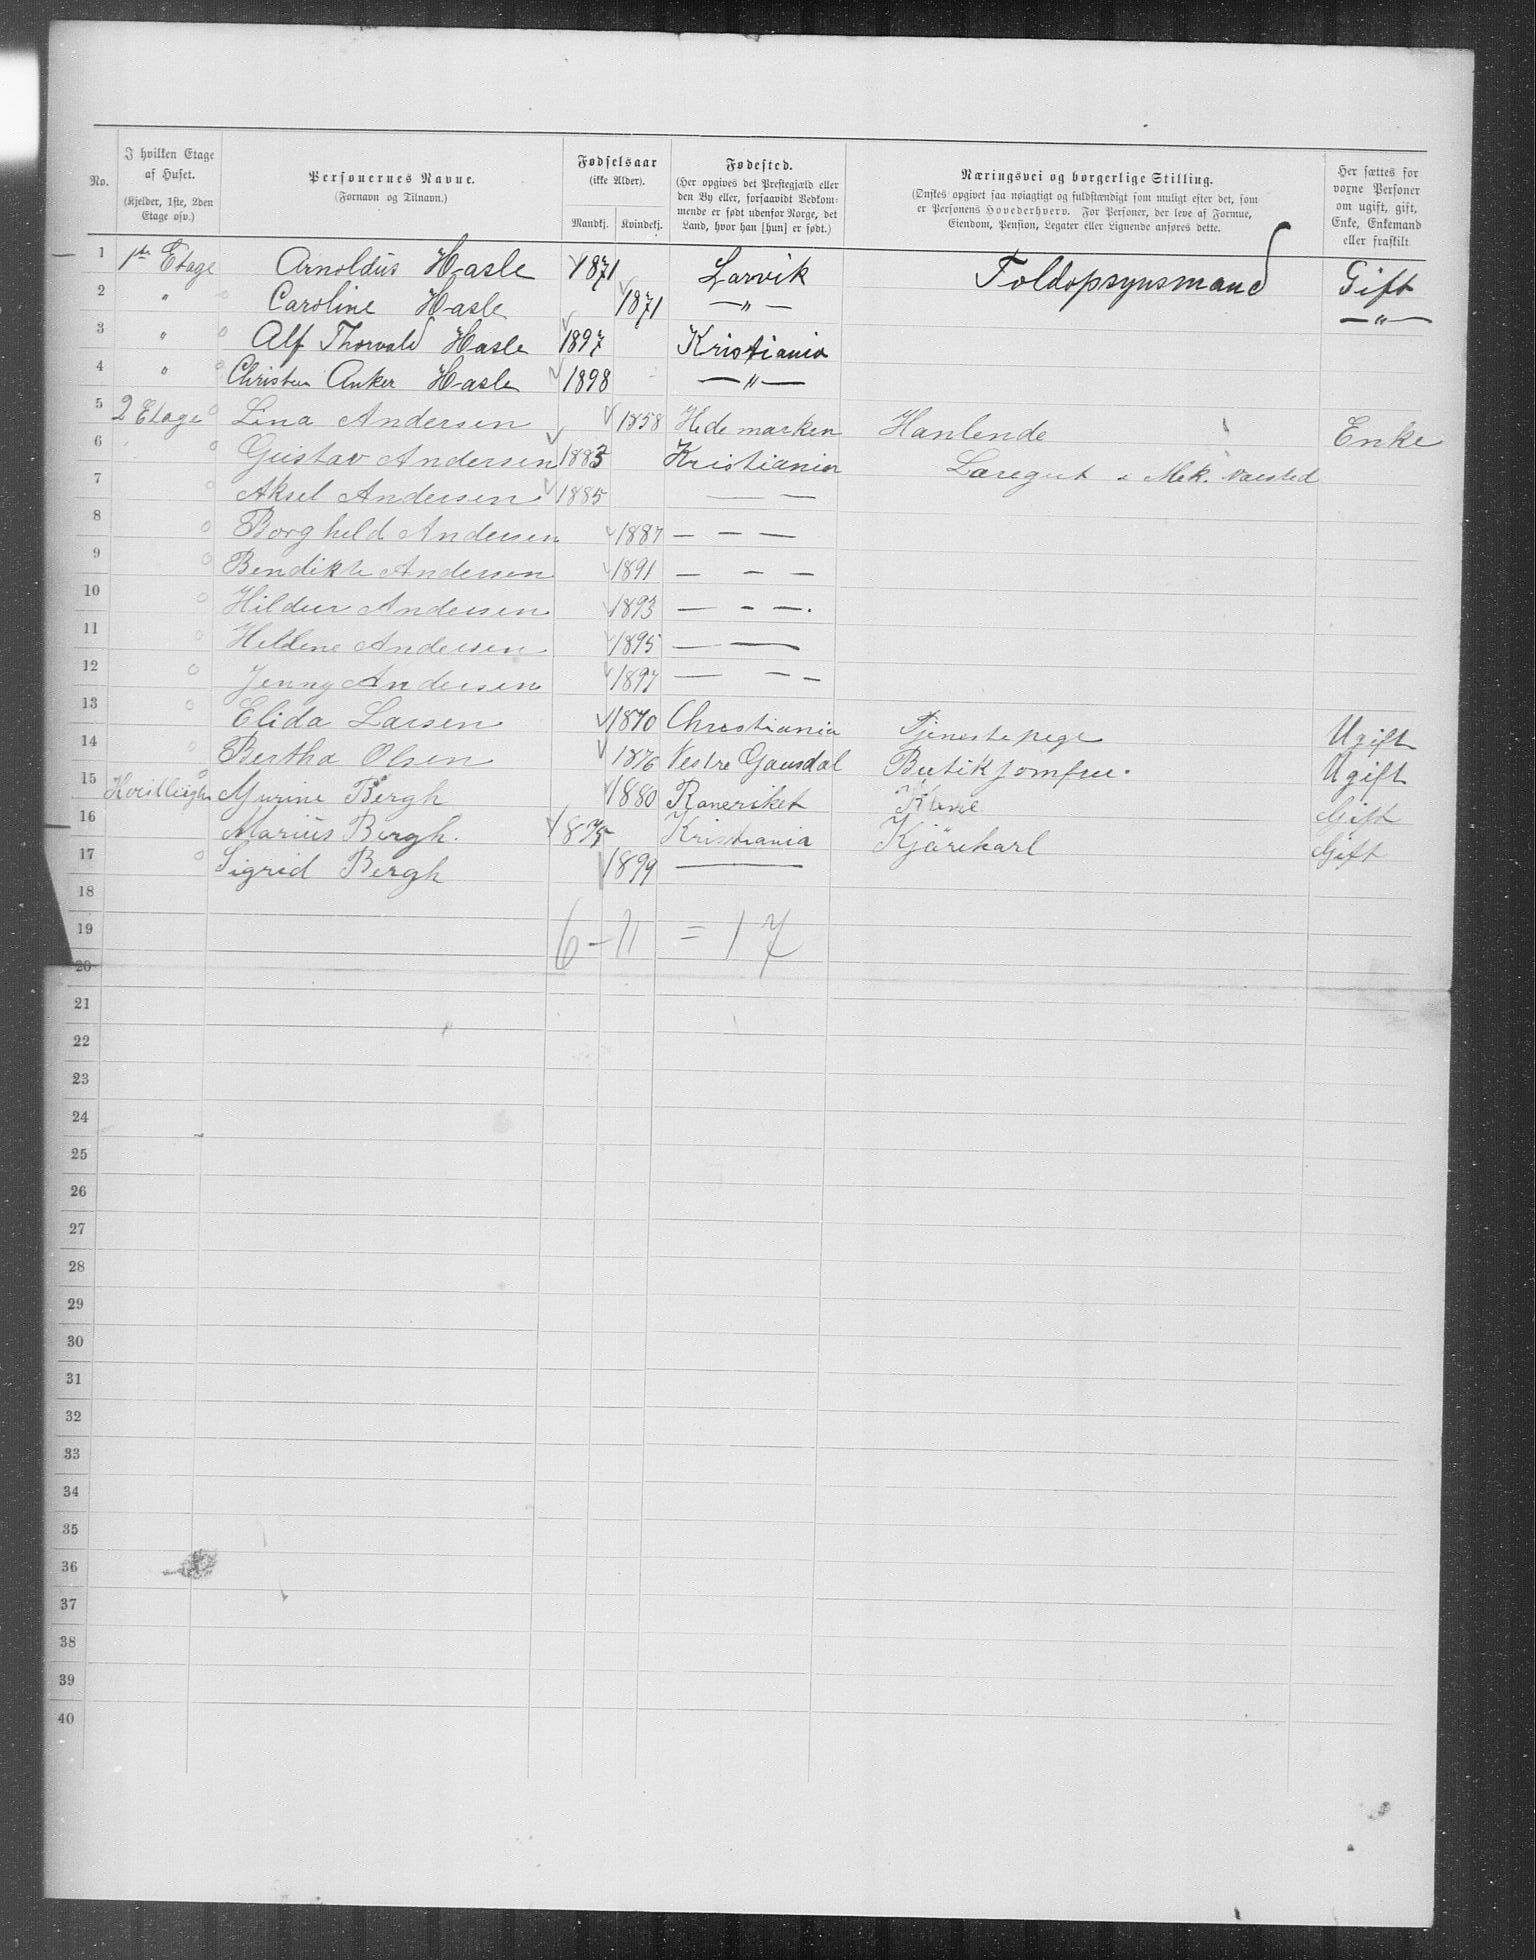 No.
I hvilken Etage af Huset. (Kjelder, 1ste, 2den Etage osv.)
Personernes Navne. (Fornavn og Tilnavn.)
Fødselsaar (ikke Alder). Mandkj. Kvindekj.
Fødested. (Her opgives det Prestegjæld eller den By eller, forsaavidt Vedkommende er født udenfor Norge, det Land, hvor han [hun] er født.)
Næringsvei og borgerlige Stilling. (Ønskes opgivet saa nøiagtigt og fuldstændigt som muligt efter det, som er Personens Hovederhverv. For Personer, der leve af Formue, Eiendom, Pension, Legater eller Lignende anføres dette.
Her sættes for voxne Personer om ugift, gift, Enke, Enkemand eller fraskilt
1 1ste Etage Arnoldus Hasle 1871 Larvik Toldopsynsmand Gift
2 " Caroline Hasle 1871 — " — — " —
3 " Alf Thorvald Hasle 1897 Kristiania
4 " Christen Anker Hasle 1898 — " —
5 2 Etage Lina Andersen 1858 Hedemarken Hanlende Enke
6 Gustav Andersen 1883 Kristiania Læregut i Mek. Værsted
7 Aksel Andersen 1885 — —
8 Borghild Andersen 1887 — — —
9 Bendikte Andersen 1891 — — —
10 Hildur Andersen 1893 — — —.
11 Heldene Andersen 1895 — —
12 Jenny Andersen 1897 — — —
13 Elida Larsen 1870 Christiania Tjenestepege Ugift
14 Bertha Olsen 1876 Vestre Gausdal Butikjomfru. Ugift
15 Kvistleiligh Myrine Bergh 1880 Romeriket Kone Gift
16 Marius Bergh. 1875 Kristiania Kjörekarl Gift
17 Sigrid Bergh 1899 ——
18
19 6 - 11 = 17
20
21
22
23
24
25
26
27
28
29
30
31
32
33
34
35
36
37
38
39
40